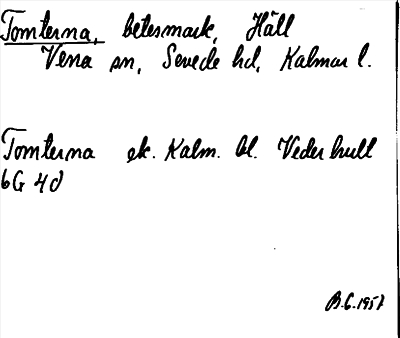 Tomterna, betesmark, Häll
Vena sn, Sevede hd, Kalmar l.
Tomterna ek. Kalm. bl. Vederhull
6G 4d
B.G. 1957